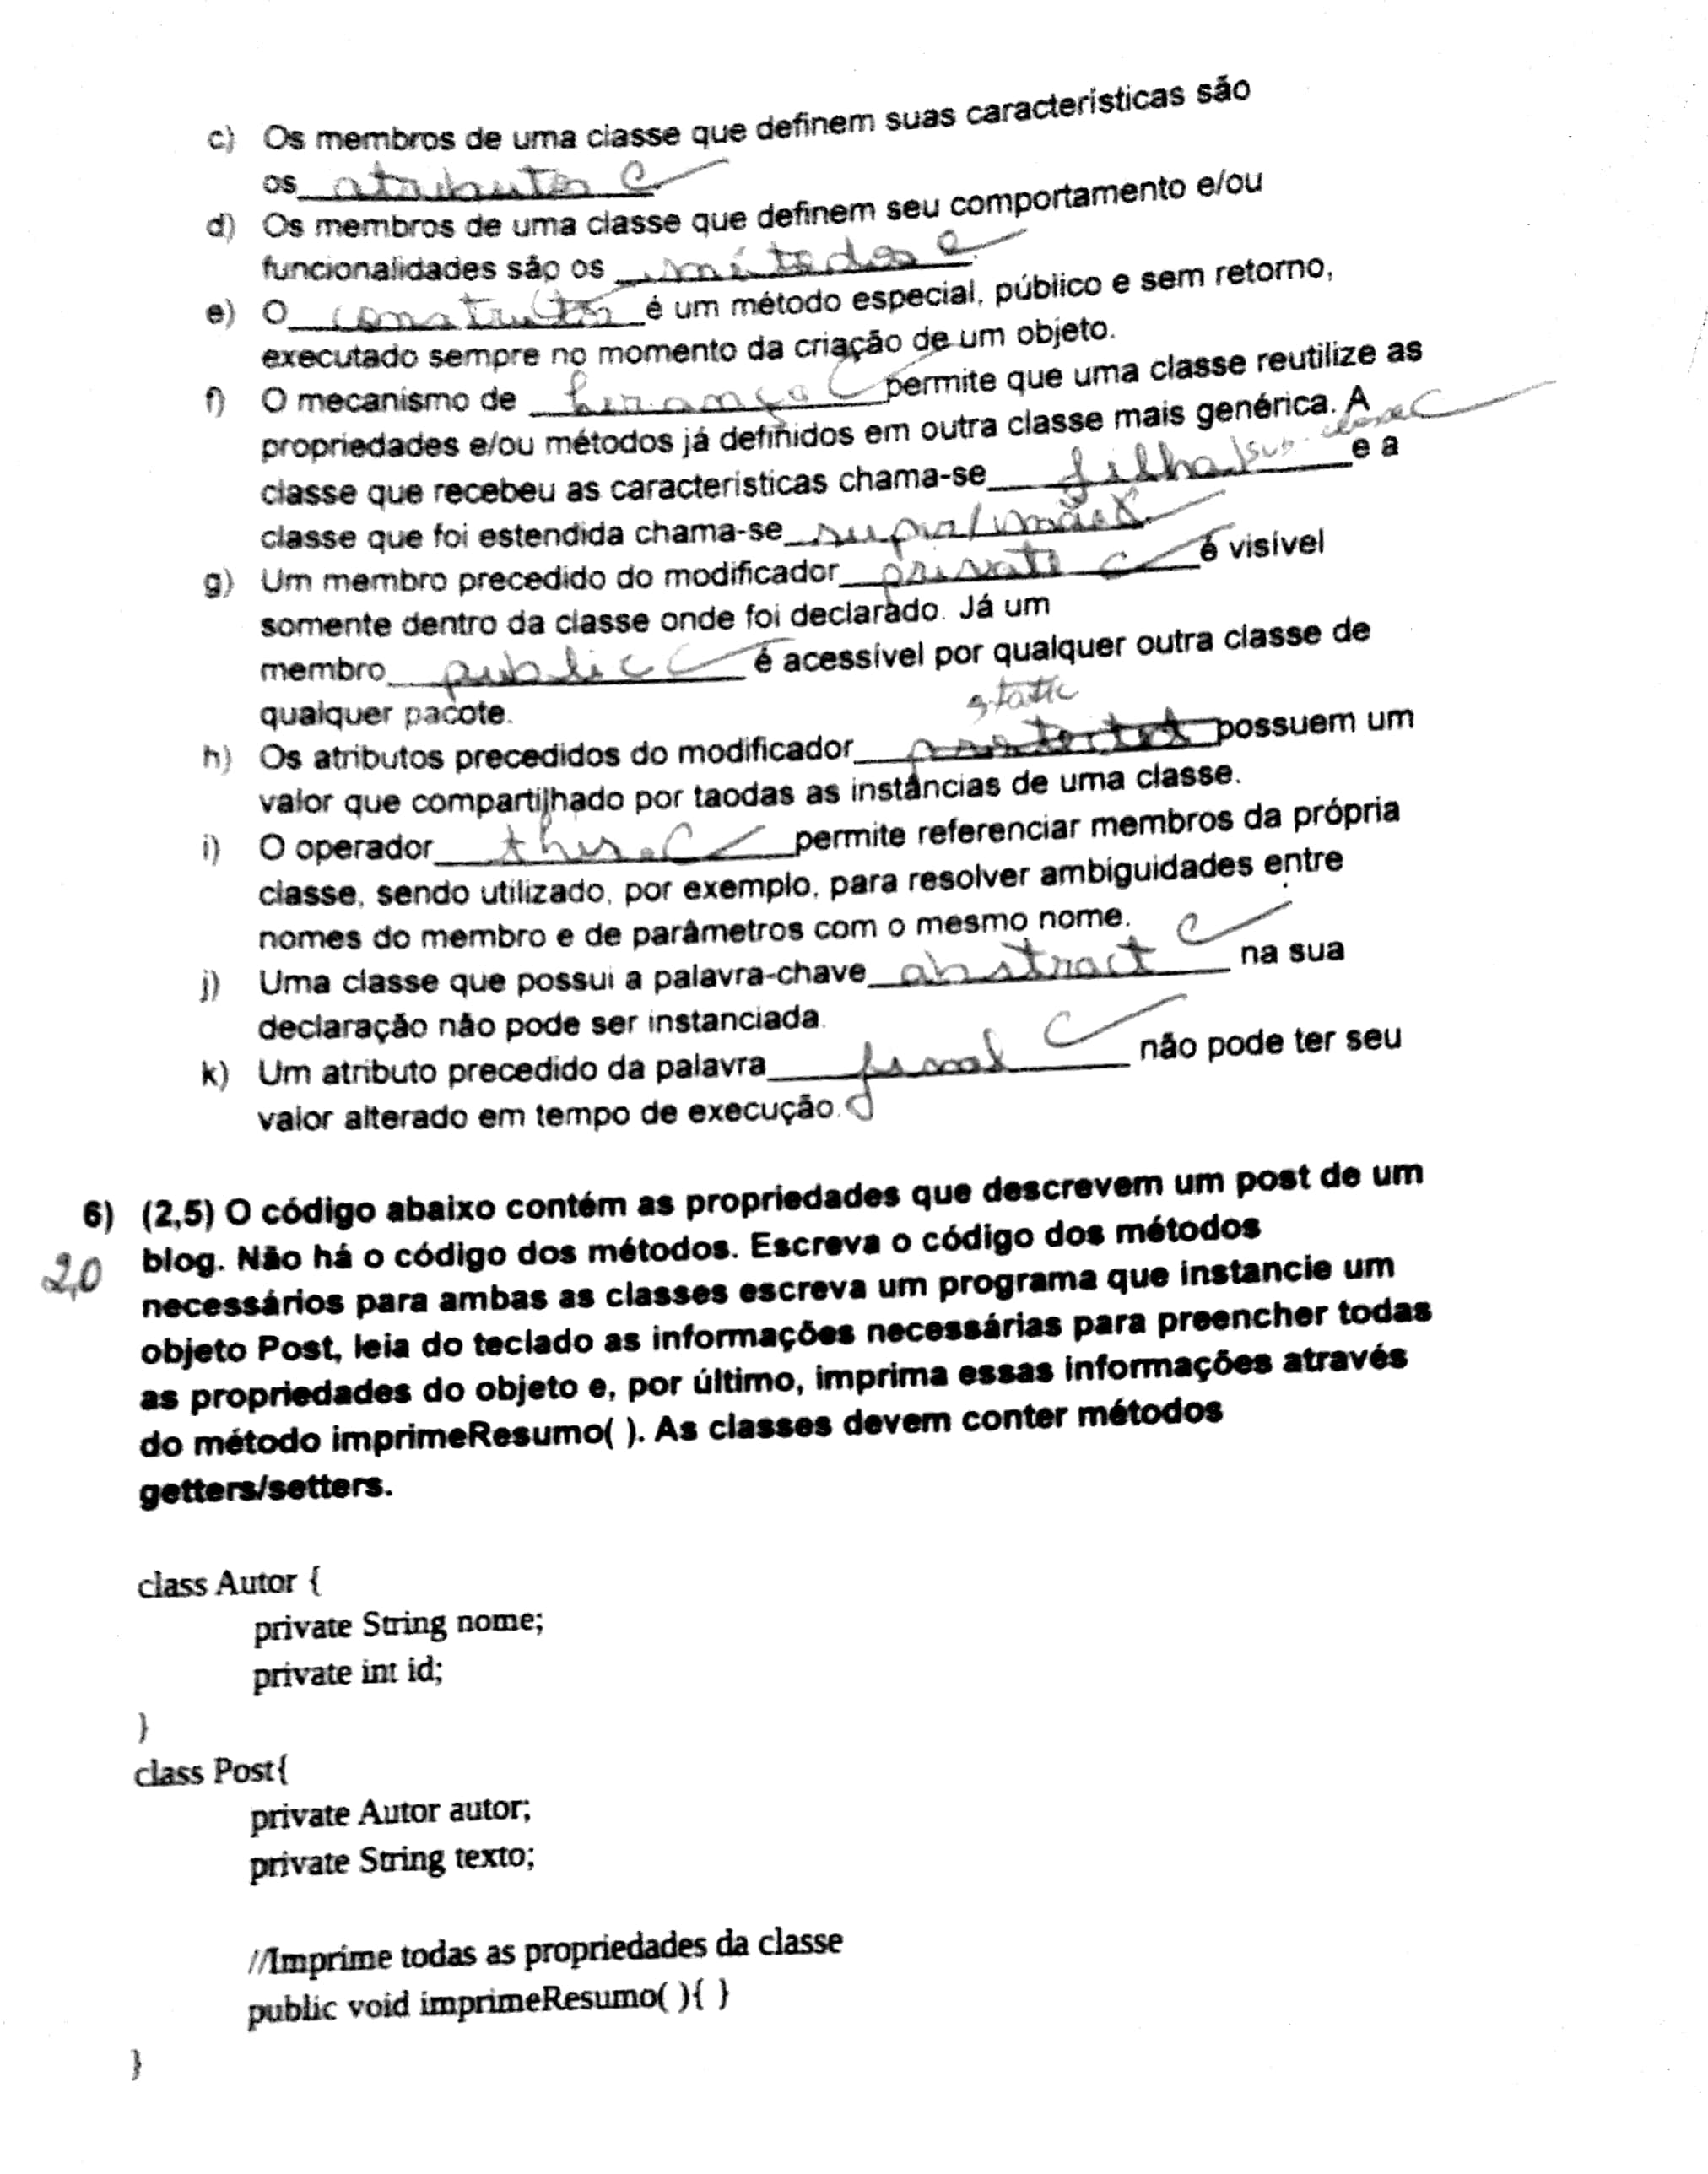 c) Os membros de uma classe que definem suas características são
os atributos C
d) Os membros de uma classe que definem seu comportamento e/ou
funcionalidades são os métodos C
e) O construtor é um método especial, público e sem retorno,
executado sempre no momento da criação de um objeto.
f) O mecanismo de herança C permite que uma classe reutilize as
propriedades e/ou métodos já definidos em outra classe mais genérica. A
classe que recebeu as características chama-se filha/sub-classe C e a
classe que foi estendida chama-se super/mãe
g) Um membro precedido do modificador private C é visível
somente dentro da classe onde foi declarado. Já um
membro public C é acessível por qualquer outra classe de
qualquer pacote.
static
h) Os atributos precedidos do modificador protected possuem um
valor que compartilhado por taodas as instâncias de uma classe.
i) O operador this. C permite referenciar membros da própria
classe, sendo utilizado, por exemplo, para resolver ambiguidades entre
nomes do membro e de parâmetros com o mesmo nome.
j) Uma classe que possui a palavra-chave abstract C na sua
declaração não pode ser instanciada.
k) Um atributo precedido da palavra final C não pode ter seu
valor alterado em tempo de execução.
6) (2,5) O código abaixo contém as propriedades que descrevem um post de um
2,0 blog. Não há o código dos métodos. Escreva o código dos métodos
necessários para ambas as classes escreva um programa que instancie um
objeto Post, leia do teclado as informações necessárias para preencher todas
as propriedades do objeto e, por último, imprima essas informações através
do método imprimeResumo( ). As classes devem conter métodos
getters/setters.
class Autor {
private String nome;
private int id;
}
class Post{
private Autor autor;
private String texto;
//Imprime todas as propriedades da classe
public void imprimeResumo( ){ }
}